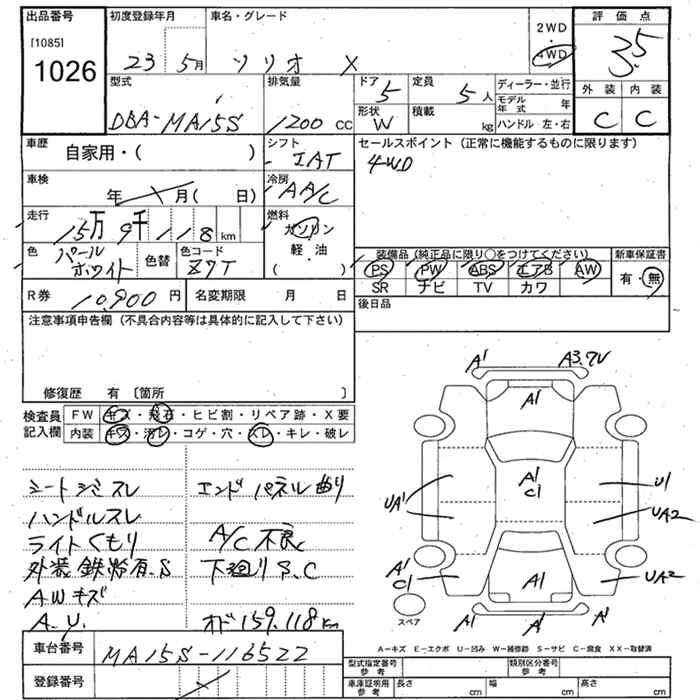 出品番号
[1085]
1026
初度登録年月
23 5月
車名・グレード
ソリオ X
2WD
4WD
評価点
3.5
外装 内装
C C
型式
DBA-MA15S
排気量
1200 CC
ドア 5
定員 5人
形状 W
積載 kg
ディーラー・並行
モデル年式 年
ハンドル 左・右
車歴
自家用・( )
シフト
IAT
セールスポイント (正常に機能するものに限ります)
4WD
車検
年 月( 日)
冷房
AA/C
走行
15万9千118km
燃料
ガソリン
軽・油
( )
色
パール
ホワイト
色替
色コード
Z7T
装備品 (純正品に限り○をつけてください)
PS PW ABS エアB AW
SR ナビ TV カワ
新車保証書
有・無
R券 10,900 円
名変期限 月 日
後日品
注意事項申告欄 (不具合内容等は具体的に記入して下さい)
修復歴 有 〔箇所 〕
検査員
記入欄
FW キズ・飛石・ヒビ割・リペア跡・X要
内装 キズ・汚レ・コゲ・穴・スレ・キレ・破レ
シートシミスレ
ハンドルスレ
ライトくもり
外装鉄粉有.S
AWキズ
A-Y.
エンドパネル曲り
A/C不良
下廻りS.C
オド159.118km
A1
A3.アV
A1
A1
C1
UA1
U1
UA2
A1
C1
A1
UA2
A1
A1
A1
スペア
A－キズ E－エクボ U－凹み W－補修跡 S－サビ C－腐食 XX－取替済
車台番号
MA15S-116522
登録番号
型式指定番号
参考
類別区分番号
参考
車庫証明用
参考
長さ cm
幅 cm
高さ cm